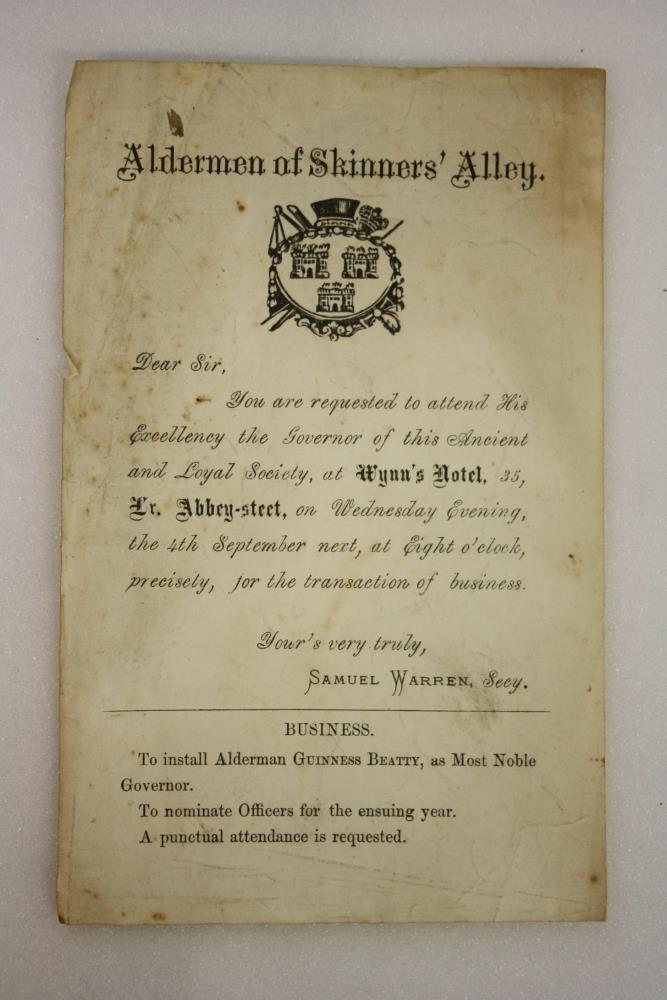 Aldermen of Skinners' Alley.
Dear Sir,
You are requested to attend His
Excellency the Governor of this Ancient
and Loyal Society, at Wynn's Hotel, 35,
Lr. Abbey-steet, on Wednesday Evening,
the 4th September next, at Eight o'clock,
precisely, for the transaction of business.
Your's very truly,
SAMUEL WARREN, Secy.
BUSINESS.
To install Alderman GUINNESS BEATTY, as Most Noble
Governor.
To nominate Officers for the ensuing year.
A punctual attendance is requested.